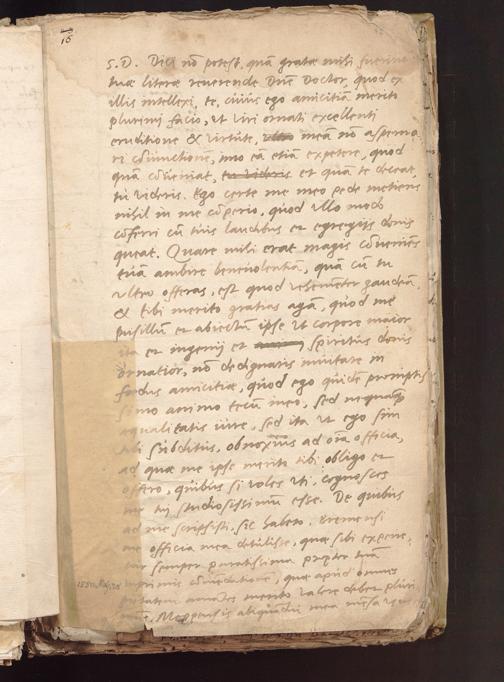 15
S. D. Dici nō potest, quā gratæ mihi fuerint
tuæ literæ reverende Dne Doctor, quod ex
illis intellexi, te, cuius ego amicitiā merito
plurimi facio, ut viri ornati excellenti
eruditione & virtute, meā nō asperna
ri cōiunctione, imo eā etiā expetere, quod
quā cōveniat, et quā te deceat,
tu videris. Ego certe me meo pede metiens
nihil in me cōperio, quod ullo modo
cōferri cū tuis laudibus et egregijs donis
queat. Quare mihi erat magis cōveniens
tuā ambire benevolentiā, quā cū tu
ultro offeras, est quod vehementer gaudeā
& tibi merito gratias agā, quod me
pusillum et abiectū ipse ut corpore maior
ita et ingenij et spiritus donis
ornatior, nō dedignaris invitare in
foedus amicitiæ, quod ego quidē promptis
simo animo tecū ineo, sed nequaquā
æqualitatis iure, sed ita ut ego sim
tibi subditus, obnoxius ad oīa officia,
ad quæ me ipse merito tibi obligo et
offero, quibus si voles uti, cognosces
me tui studiosissimū esse. De quibus
ad me scripsisti, sic habeto, Bremensi
me officia mea detulisse, quæ sibi expone,
tur semper paratissima propter tuā
cōmendationē, quæ apud omnes
merito valere debet pluri
mea